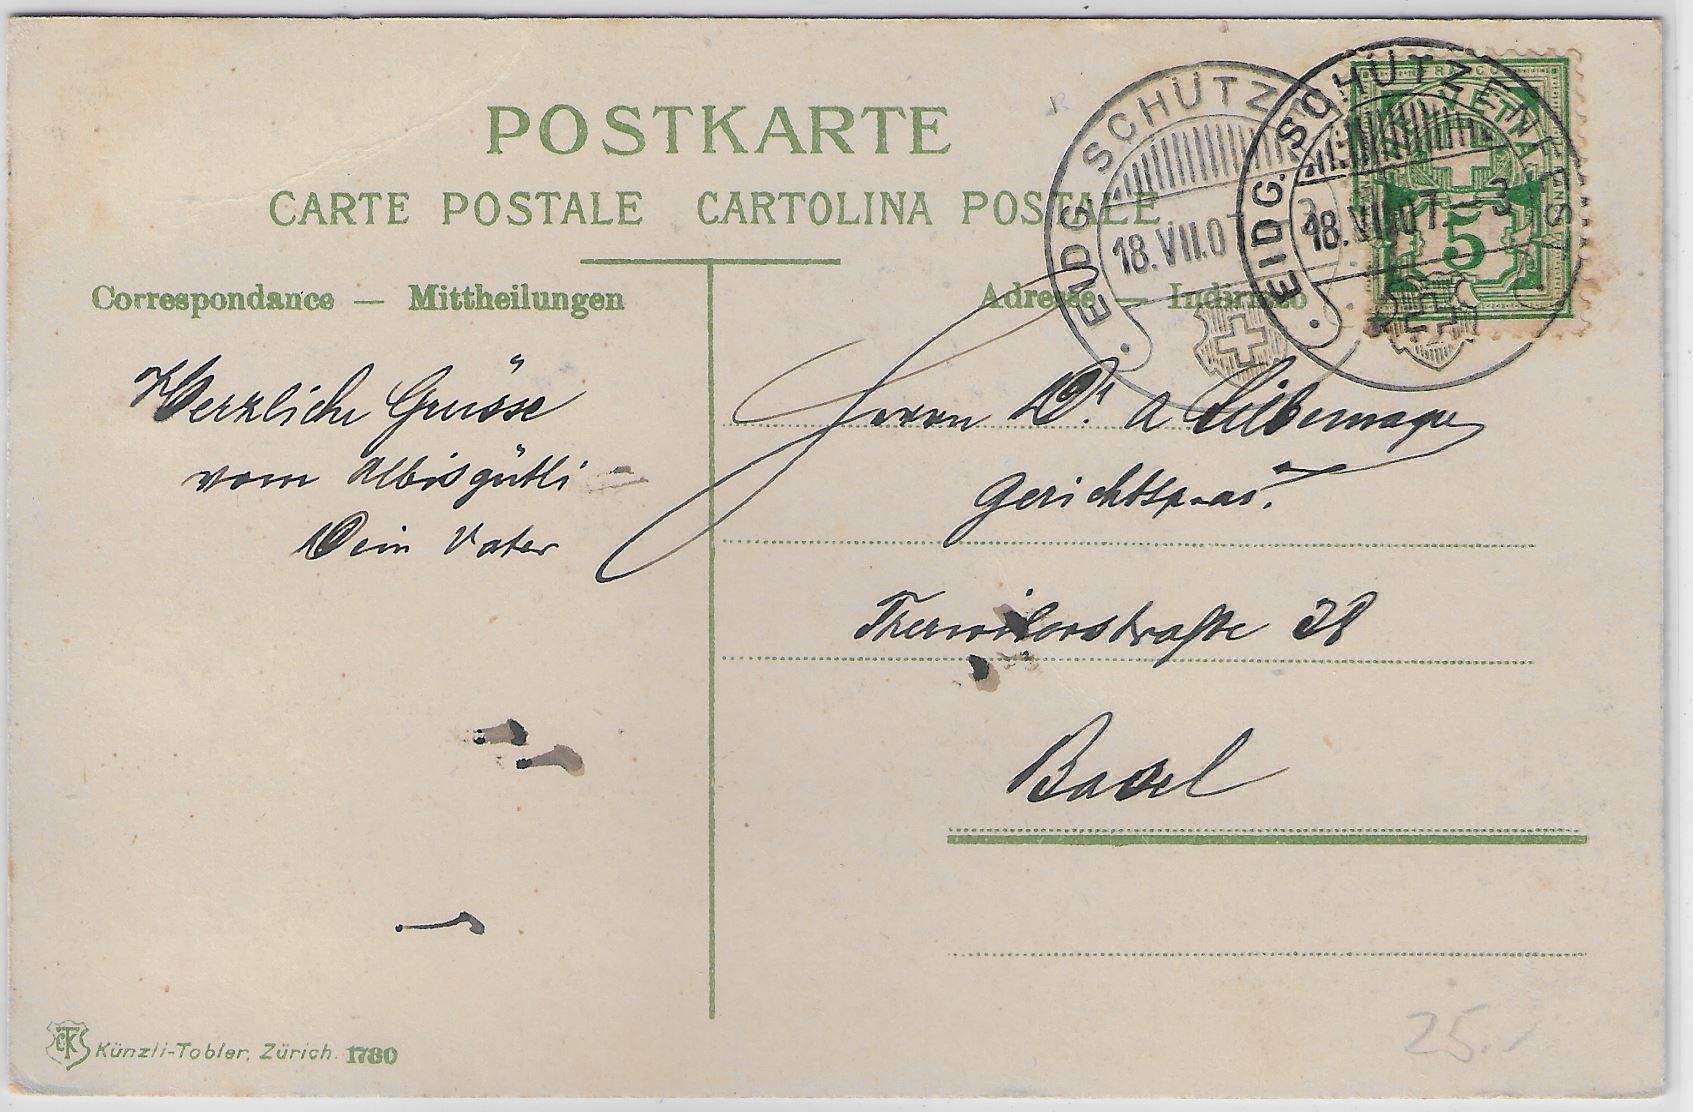 POSTKARTE
CARTE POSTALE CARTOLINA POSTALE
EIDG. SCHÜTZ
18.VII.07
EIDG. SCHÜTZENFEST
18.VII.07–3
FRANCO
HELVETIA
5
Correspondance — Mittheilungen
Adresse — Indirizzo
Herzliche Grüsse
vom Albisgütli
Dein Vater
Herrn Dr. A Silbernagel
Gerichtspräs.
Therwilerstraße 38
Basel
CTK
Künzli-Tobler, Zürich. 1780
25.-